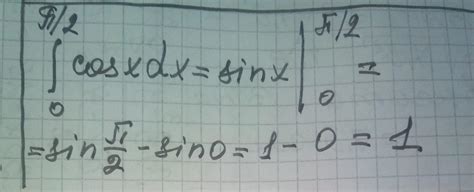 ∫₀^(π/2) cosxdx = sinx |₀^(π/2) =
= sin π/2 - sin0 = 1 - 0 = 1